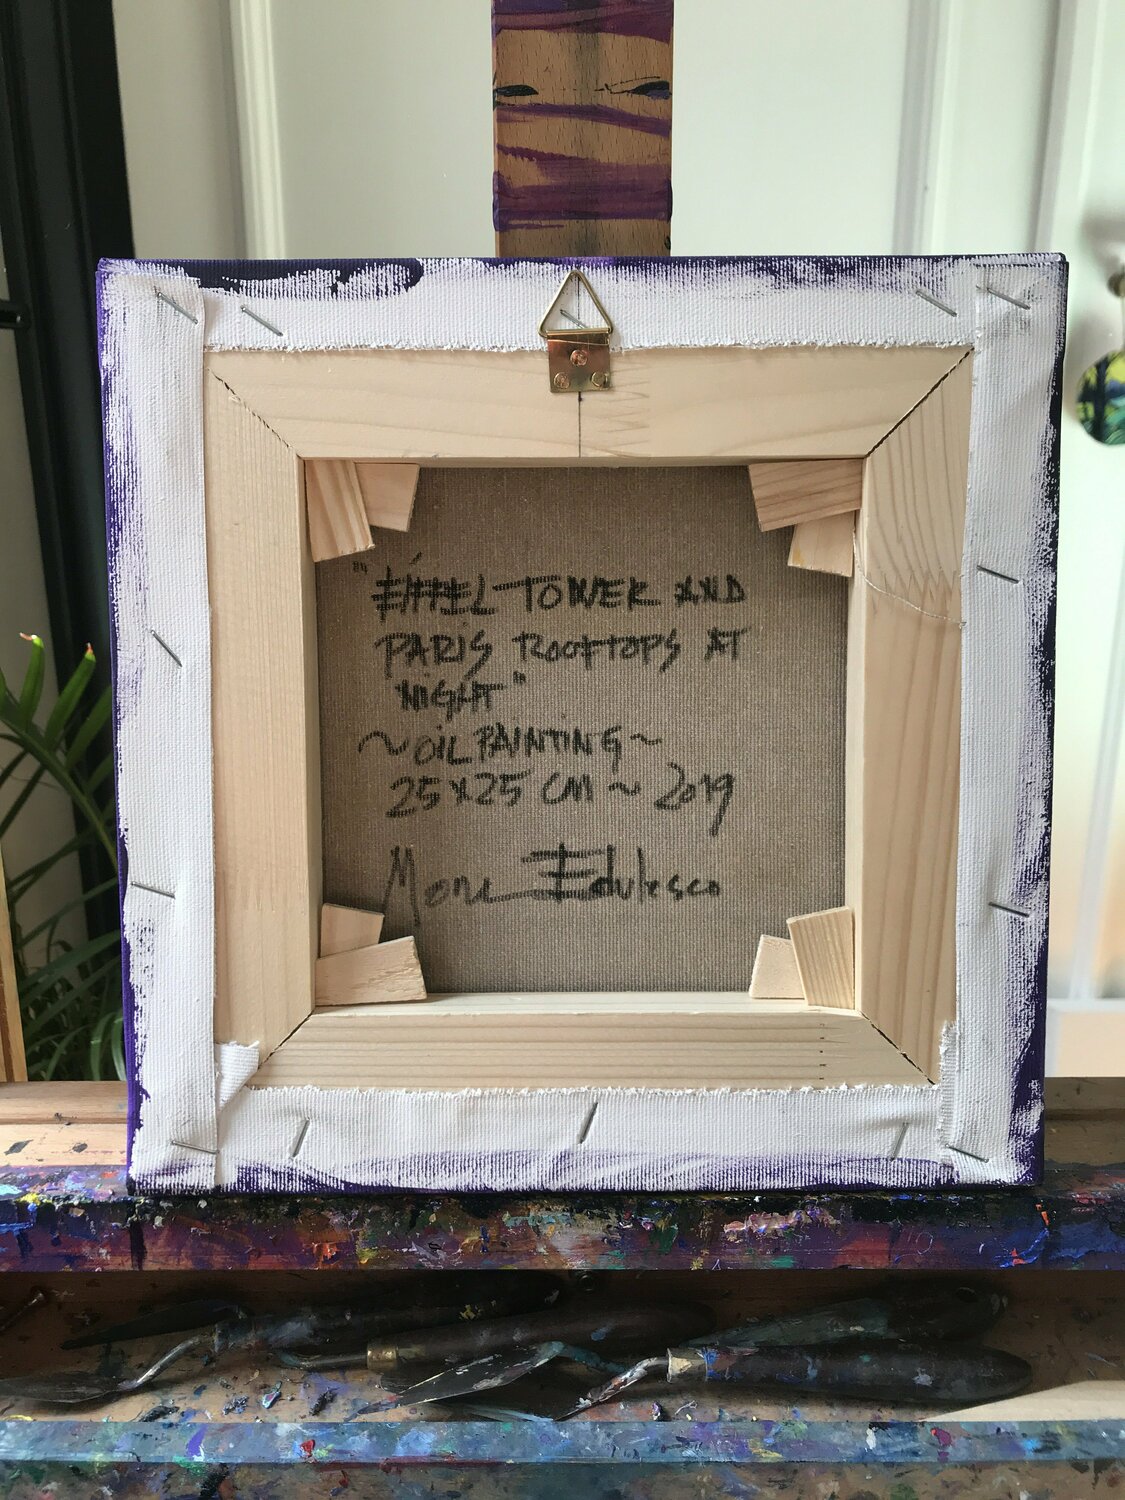 "EIFFEL TOWER AND
PARIS ROOFTOPS AT
NIGHT"
~OIL PAINTING~
25x25 CM ~ 2019
Mona Edulesco